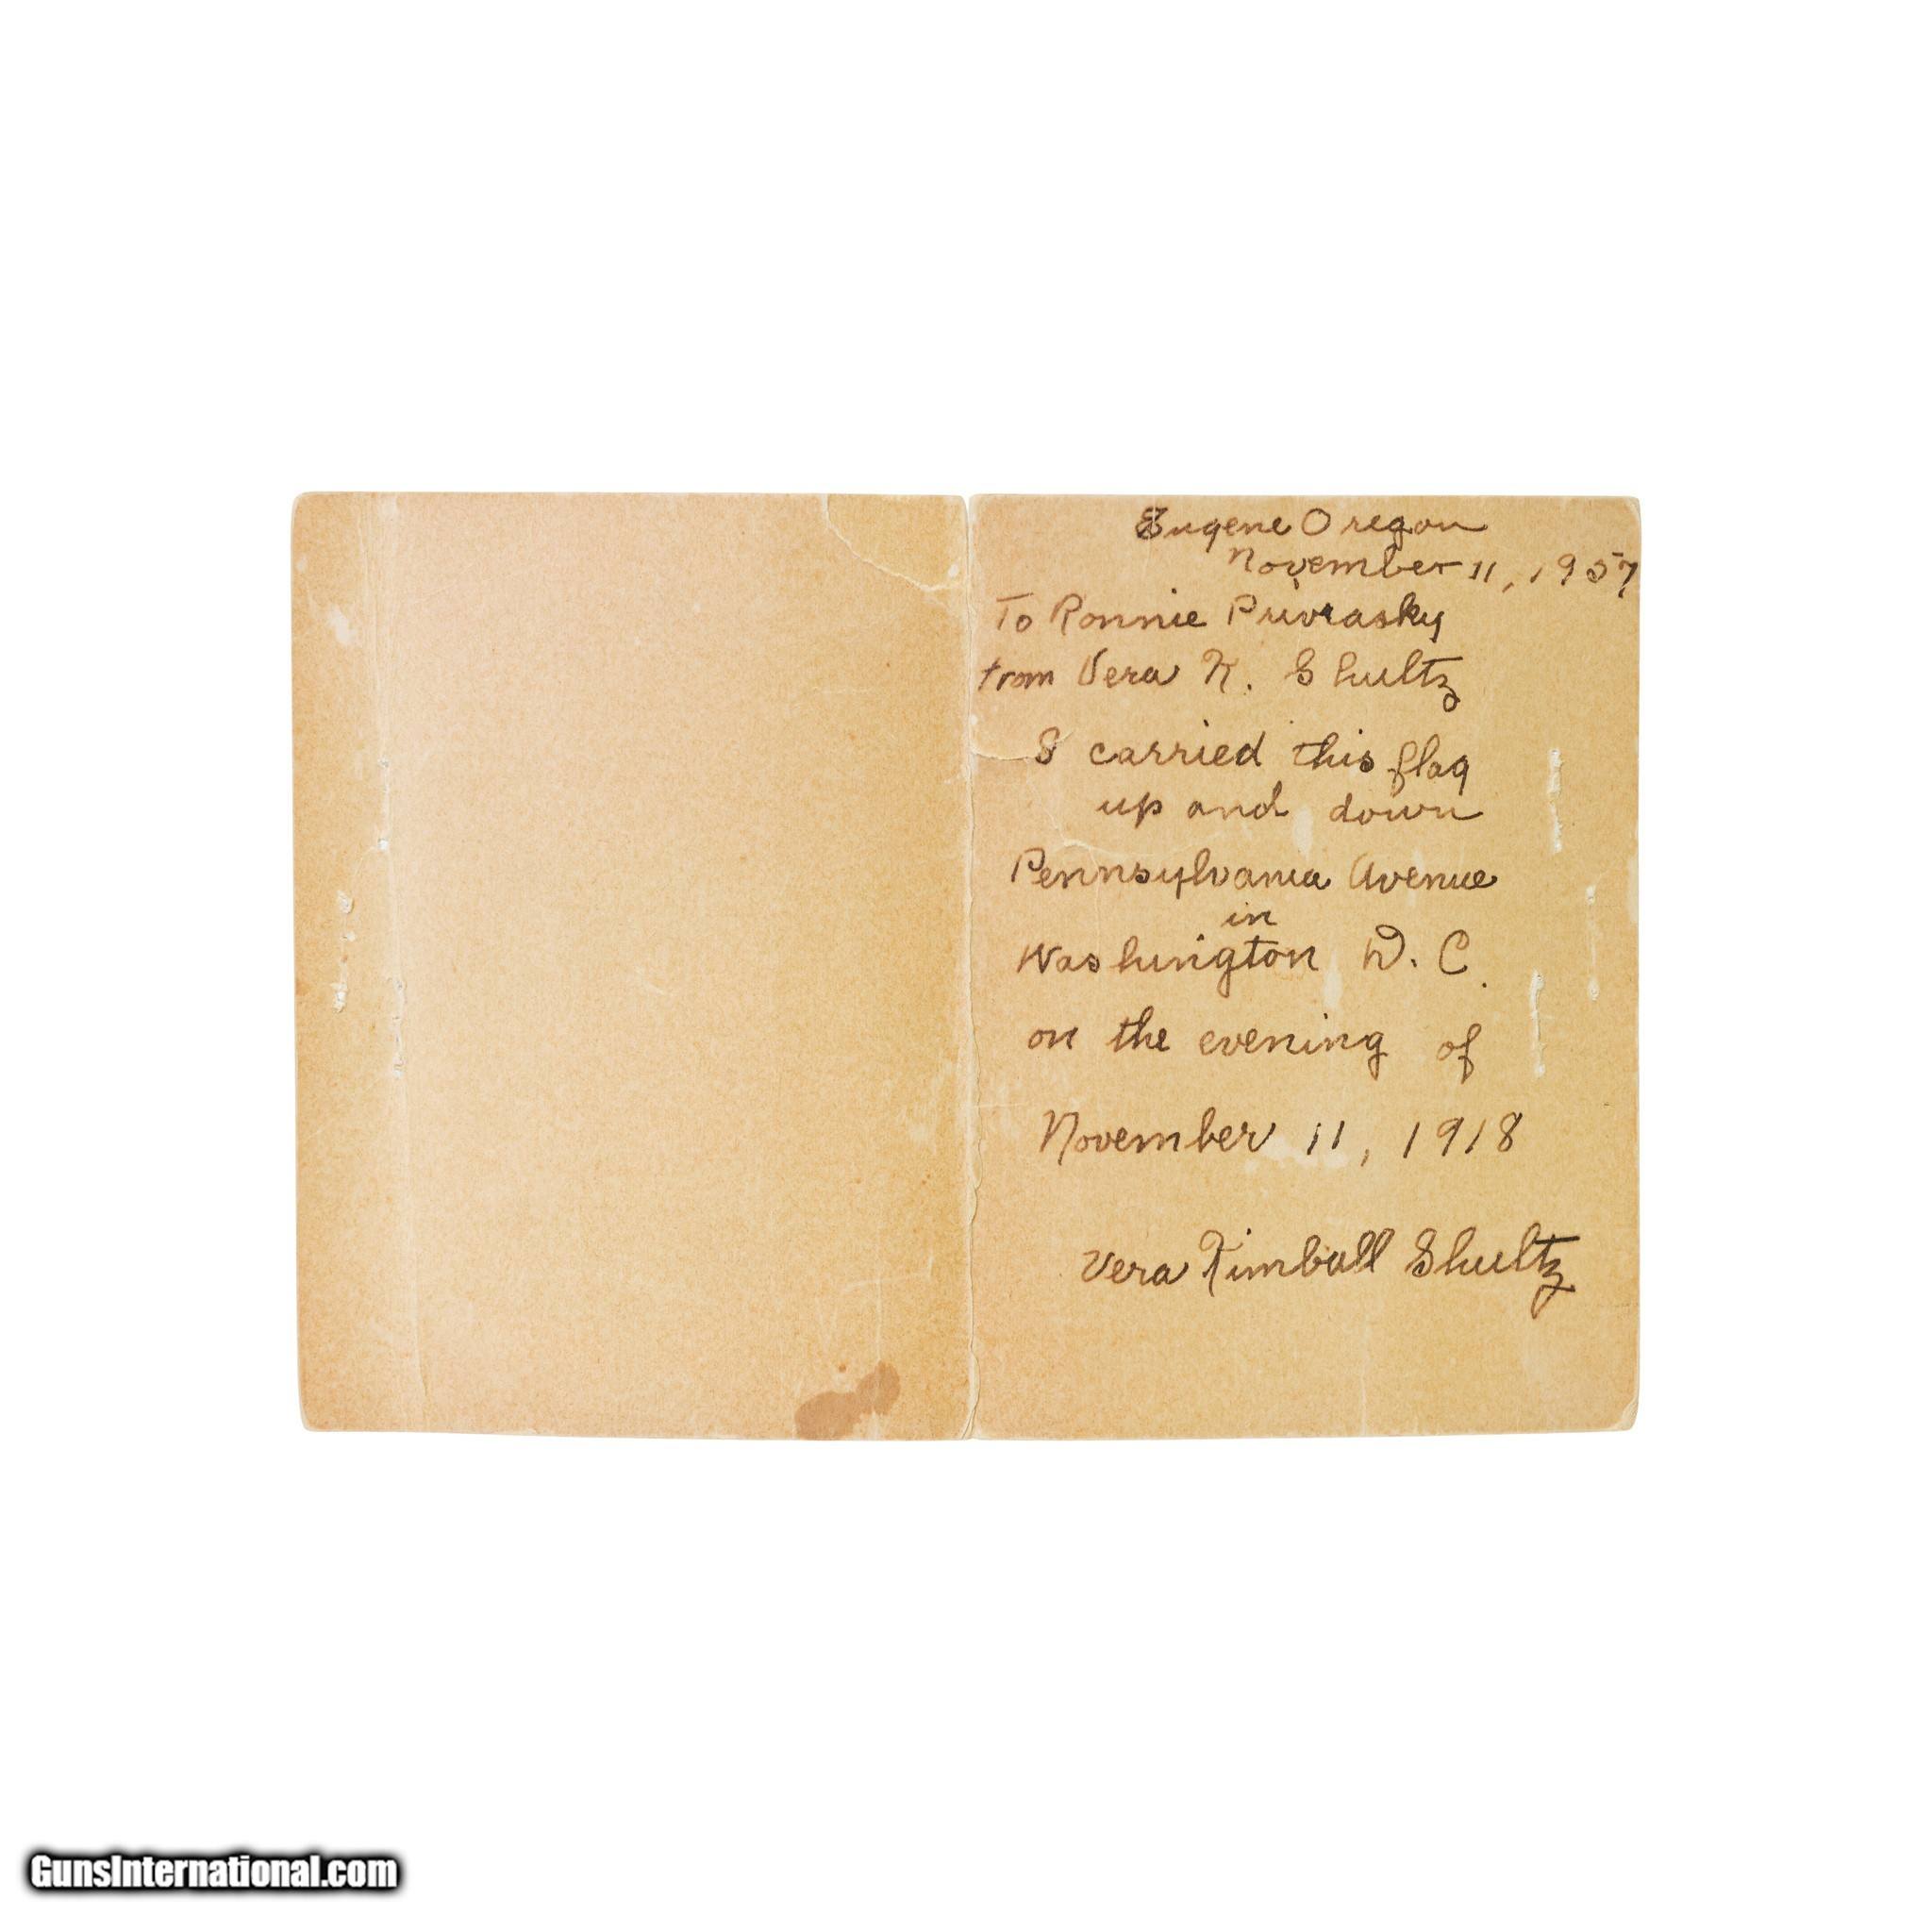 Eugene Oregon
November 11, 1957
To Ronnie Privrasky
from Vera K. Shultz
I carried this flag
up and down
Pennsylvania Avenue
in
Washington D. C.
on the evening of
November 11, 1918
Vera Kimball Shultz
GunsInternational.com